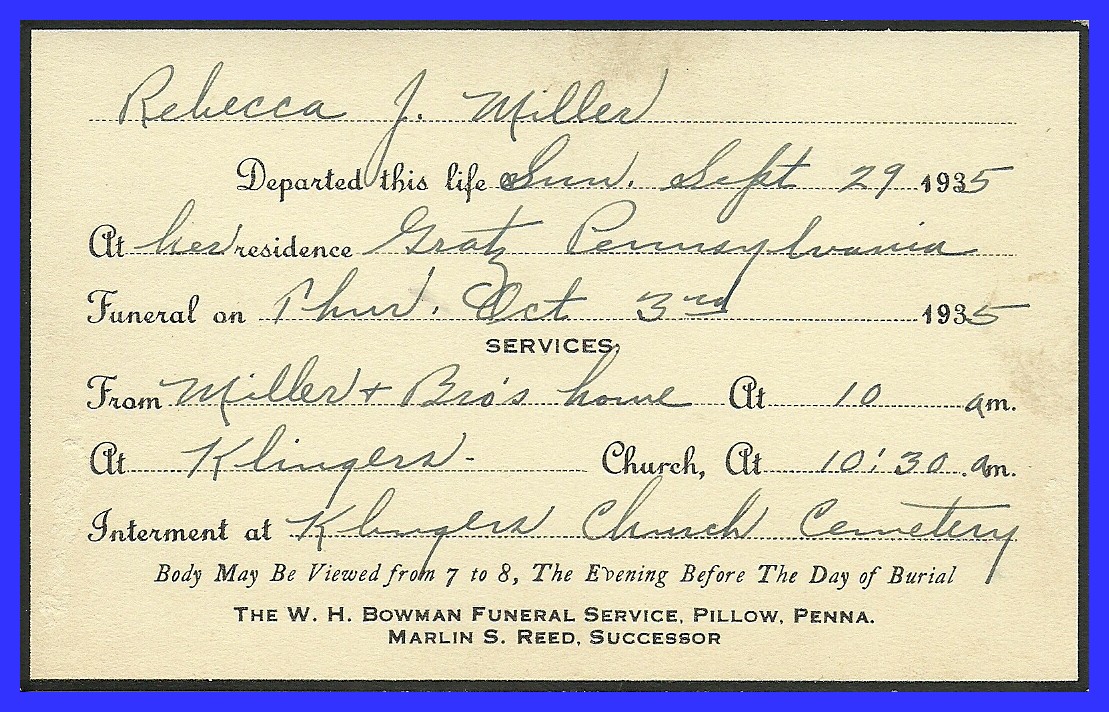 Rebecca J. Miller
Departed this life Sun. Sept 29 1935
At her residence Gratz Pennsylvania
Funeral on Thur. Oct 3rd 1935
SERVICES
From Miller + Bro's home At 10 am.
At Klingers - Church, At 10:30 am.
Interment at Klingers Church Cemetery
Body May Be Viewed from 7 to 8, The Evening Before The Day of Burial
THE W. H. BOWMAN FUNERAL SERVICE, PILLOW, PENNA.
MARLIN S. REED, SUCCESSOR